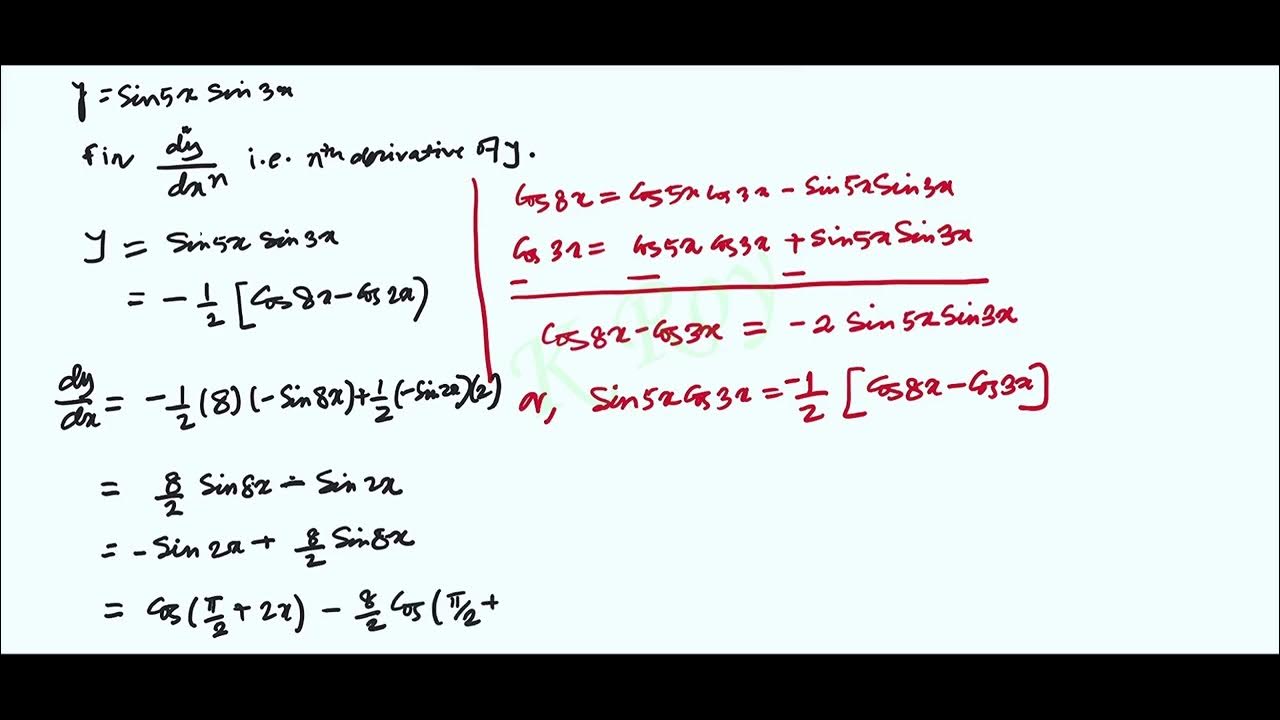 y = Sin5x Sin 3x
fin dⁿy/dxⁿ i.e. nth derivative of y.
y = Sin5x Sin 3x
= -1/2 [Cos 8x - Cos 2x)
dy/dx = -1/2 (8) (-Sin 8x) + 1/2 (-Sin2x)(2)
= 8/2 Sin8x - Sin 2x
= - Sin 2x + 8/2 Sin8x
= Cos (π/2 + 2x) - 8/2 Cos (π/2 +
Cos 8x = Cos 5x Cos 3x - Sin5x Sin 3x
Cos 3x = Cos 5x Cos 3x + Sin5x Sin 3x
Cos 8x - Cos 3x = -2 Sin 5x Sin 3x
or, Sin5x Cos 3x = -1/2 [Cos 8x - Cos 3x]
K Roy